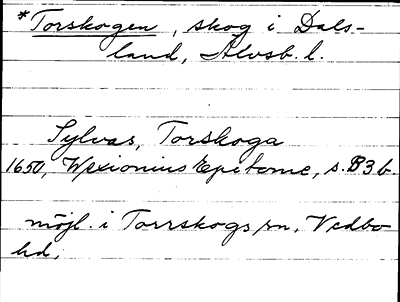 *Torskogen, skog i Dals-
land, Älvsb. l.
Sylvas, Torskoga
1650, Wexionius Epitome, s. B3b.
möjl. i Torrskogs sn, Vedbo
hd,